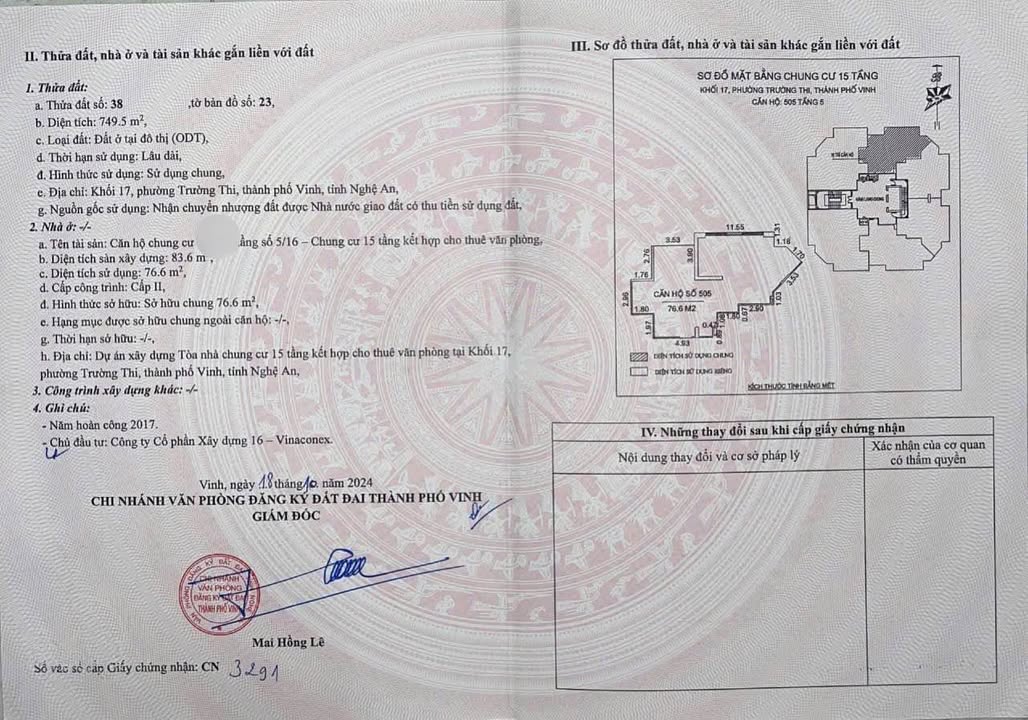 II. Thửa đất, nhà ở và tài sản khác gắn liền với đất
1. Thửa đất:
a. Thửa đất số: 38 ,tờ bản đồ số: 23,
b. Diện tích: 749.5 m²,
c. Loại đất: Đất ở tại đô thị (ODT),
d. Thời hạn sử dụng: Lâu dài,
đ. Hình thức sử dụng: Sử dụng chung,
e. Địa chỉ: Khối 17, phường Trường Thi, thành phố Vinh, tỉnh Nghệ An,
g. Nguồn gốc sử dụng: Nhận chuyển nhượng đất được Nhà nước giao đất có thu tiền sử dụng đất,
2. Nhà ở: -/-
a. Tên tài sản: Căn hộ chung cư ầng số 5/16 – Chung cư 15 tầng kết hợp cho thuê văn phòng,
b. Diện tích sàn xây dựng: 83.6 m ,
c. Diện tích sử dụng: 76.6 m²,
d. Cấp công trình: Cấp II,
đ. Hình thức sở hữu: Sở hữu chung 76.6 m²,
e. Hạng mục được sở hữu chung ngoài căn hộ: -/-,
g. Thời hạn sở hữu: -/-,
h. Địa chỉ: Dự án xây dựng Tòa nhà chung cư 15 tầng kết hợp cho thuê văn phòng tại Khối 17,
phường Trường Thi, thành phố Vinh, tỉnh Nghệ An,
3. Công trình xây dựng khác: -/-
4. Ghi chú:
- Năm hoàn công 2017.
- Chủ đầu tư: Công ty Cổ phần Xây dựng 16 – Vinaconex.
Vinh, ngày 18 tháng 10 năm 2024
CHI NHÁNH VĂN PHÒNG ĐĂNG KÝ ĐẤT ĐAI THÀNH PHỐ VINH
GIÁM ĐỐC
CHI NHÁNH
VĂN PHÒNG
ĐĂNG KÝ ĐẤT ĐAI
THÀNH PHỐ VINH
Mai Hồng Lê
Số vào sổ cấp Giấy chứng nhận: CN 3291
III. Sơ đồ thửa đất, nhà ở và tài sản khác gắn liền với đất
SƠ ĐỒ MẶT BẰNG CHUNG CƯ 15 TẦNG
KHỐI 17, PHƯỜNG TRƯỜNG THI, THÀNH PHỐ VINH
CĂN HỘ: 505 TẦNG 5
11.55
3.53
2.76
3.90
1.16
1.70
3.53
1.76
2.96
CĂN HỘ SỐ 505
76.6 M2
1.03
1.80
2.90
0.67
1.97
4.93
DIỆN TÍCH SỬ DỤNG CHUNG
DIỆN TÍCH SỬ DỤNG RIÊNG
KÍCH THƯỚC TÍNH BẰNG MÉT
IV. Những thay đổi sau khi cấp giấy chứng nhận
Nội dung thay đổi và cơ sở pháp lý
Xác nhận của cơ quan
có thẩm quyền